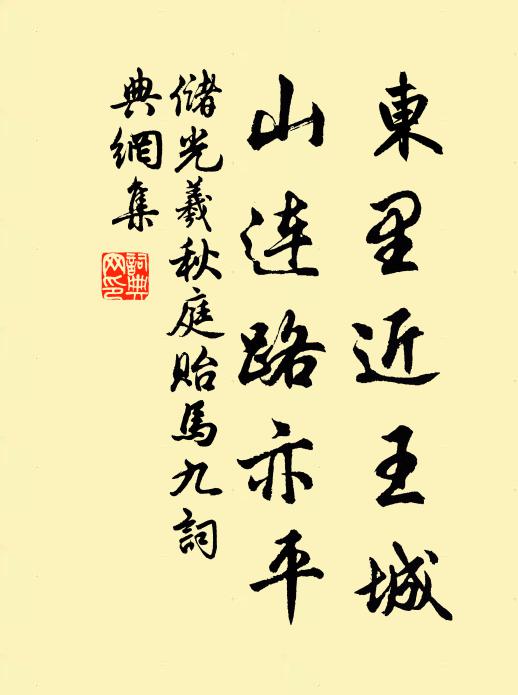 東里近王城
山連路亦平
儲光羲秋庭貽馬九詞
典網集
詞典網印